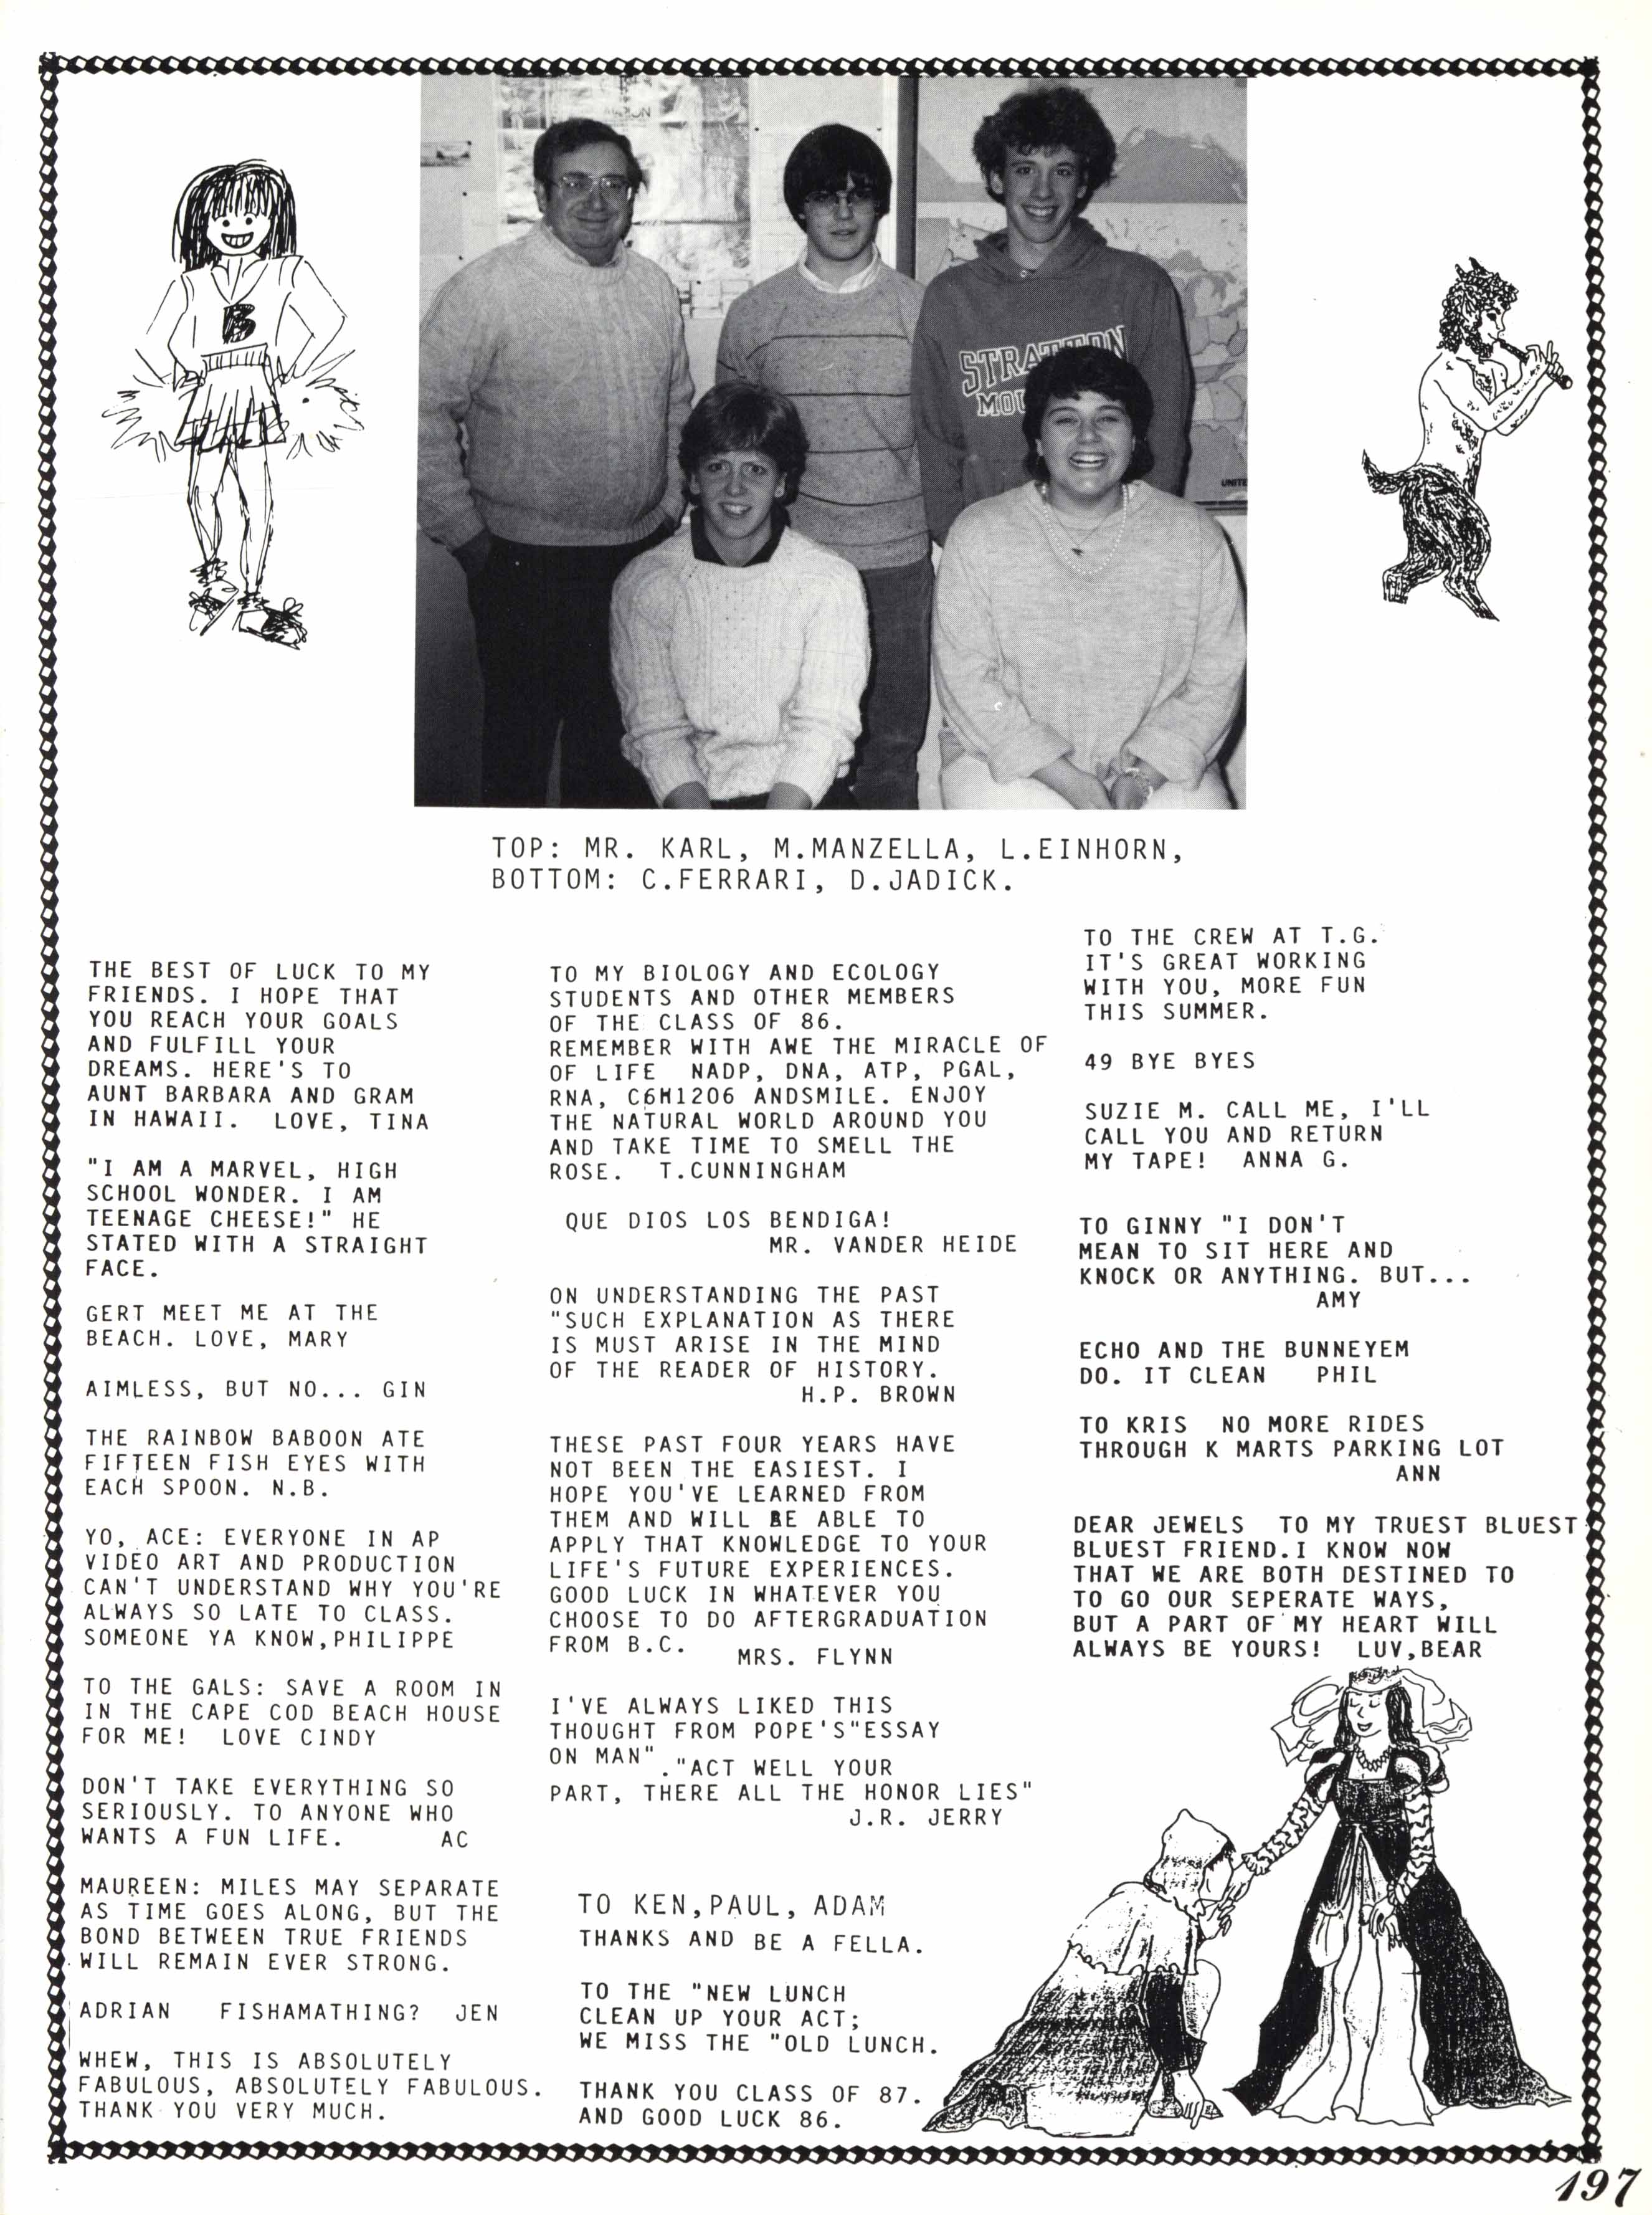 B
STRATTON
MOU
UNITE
TOP: MR. KARL, M.MANZELLA, L.EINHORN,
BOTTOM: C.FERRARI, D.JADICK.
THE BEST OF LUCK TO MY
FRIENDS. I HOPE THAT
YOU REACH YOUR GOALS
AND FULFILL YOUR
DREAMS. HERE'S TO
AUNT BARBARA AND GRAM
IN HAWAII. LOVE, TINA
"I AM A MARVEL, HIGH
SCHOOL WONDER. I AM
TEENAGE CHEESE!" HE
STATED WITH A STRAIGHT
FACE.
GERT MEET ME AT THE
BEACH. LOVE, MARY
AIMLESS, BUT NO... GIN
THE RAINBOW BABOON ATE
FIFTEEN FISH EYES WITH
EACH SPOON. N.B.
YO, ACE: EVERYONE IN AP
VIDEO ART AND PRODUCTION
CAN'T UNDERSTAND WHY YOU'RE
ALWAYS SO LATE TO CLASS.
SOMEONE YA KNOW,PHILIPPE
TO THE GALS: SAVE A ROOM IN
IN THE CAPE COD BEACH HOUSE
FOR ME! LOVE CINDY
DON'T TAKE EVERYTHING SO
SERIOUSLY. TO ANYONE WHO
WANTS A FUN LIFE. AC
MAUREEN: MILES MAY SEPARATE
AS TIME GOES ALONG, BUT THE
BOND BETWEEN TRUE FRIENDS
WILL REMAIN EVER STRONG.
ADRIAN FISHAMATHING? JEN
WHEW, THIS IS ABSOLUTELY
FABULOUS, ABSOLUTELY FABULOUS.
THANK YOU VERY MUCH.
TO MY BIOLOGY AND ECOLOGY
STUDENTS AND OTHER MEMBERS
OF THE CLASS OF 86.
REMEMBER WITH AWE THE MIRACLE OF
OF LIFE NADP, DNA, ATP, PGAL,
RNA, C6H1206 ANDSMILE. ENJOY
THE NATURAL WORLD AROUND YOU
AND TAKE TIME TO SMELL THE
ROSE. T.CUNNINGHAM
QUE DIOS LOS BENDIGA!
MR. VANDER HEIDE
ON UNDERSTANDING THE PAST
"SUCH EXPLANATION AS THERE
IS MUST ARISE IN THE MIND
OF THE READER OF HISTORY.
H.P. BROWN
THESE PAST FOUR YEARS HAVE
NOT BEEN THE EASIEST. I
HOPE YOU'VE LEARNED FROM
THEM AND WILL BE ABLE TO
APPLY THAT KNOWLEDGE TO YOUR
LIFE'S FUTURE EXPERIENCES.
GOOD LUCK IN WHATEVER YOU
CHOOSE TO DO AFTERGRADUATION
FROM B.C.
MRS. FLYNN
I'VE ALWAYS LIKED THIS
THOUGHT FROM POPE'S"ESSAY
ON MAN" ."ACT WELL YOUR
PART, THERE ALL THE HONOR LIES"
J.R. JERRY
TO KEN,PAUL, ADAM
THANKS AND BE A FELLA.
TO THE "NEW LUNCH
CLEAN UP YOUR ACT;
WE MISS THE "OLD LUNCH.
THANK YOU CLASS OF 87.
AND GOOD LUCK 86.
TO THE CREW AT T.G.
IT'S GREAT WORKING
WITH YOU, MORE FUN
THIS SUMMER.
49 BYE BYES
SUZIE M. CALL ME, I'LL
CALL YOU AND RETURN
MY TAPE! ANNA G.
TO GINNY "I DON'T
MEAN TO SIT HERE AND
KNOCK OR ANYTHING. BUT...
AMY
ECHO AND THE BUNNEYEM
DO. IT CLEAN PHIL
TO KRIS NO MORE RIDES
THROUGH K MARTS PARKING LOT
ANN
DEAR JEWELS TO MY TRUEST BLUEST
BLUEST FRIEND.I KNOW NOW
THAT WE ARE BOTH DESTINED TO
TO GO OUR SEPERATE WAYS,
BUT A PART OF MY HEART WILL
ALWAYS BE YOURS! LUV,BEAR
197